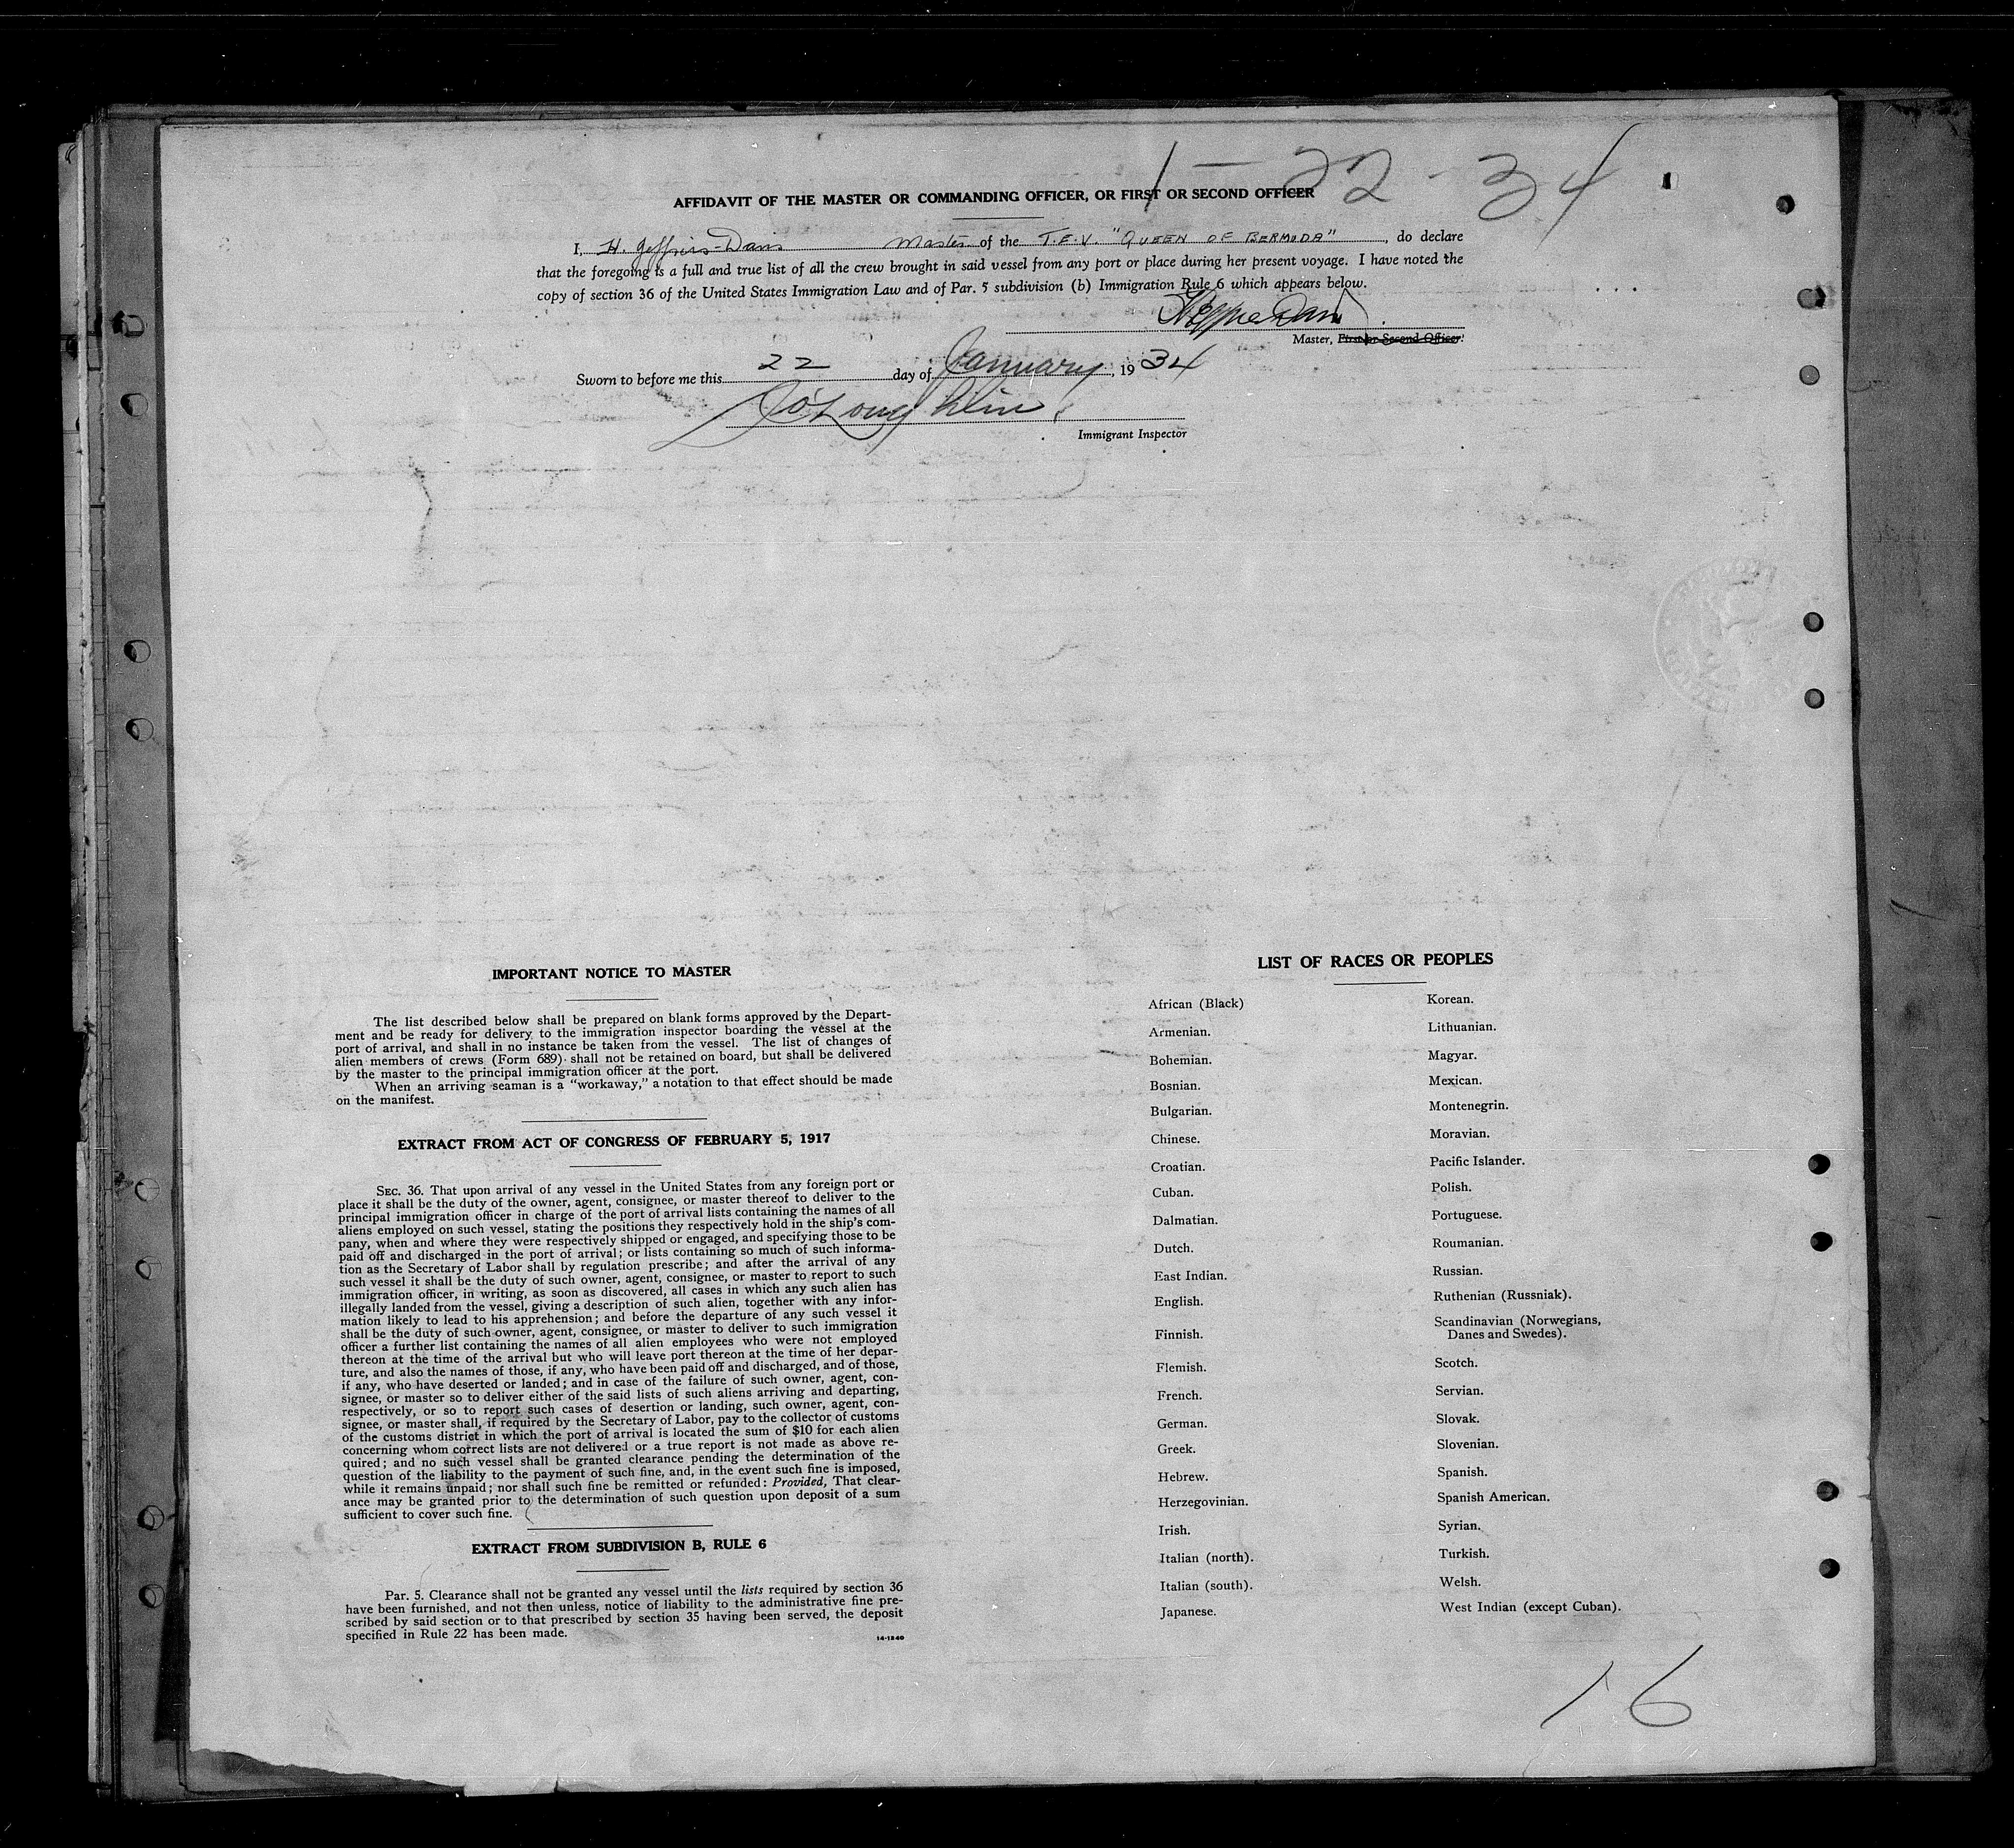 1-22-34
AFFIDAVIT OF THE MASTER OR COMMANDING OFFICER, OR FIRST OR SECOND OFFICER
I, H. Jeffries-Davis Master of the T.E.V. "QUEEN OF BERMUDA", do declare
that the foregoing is a full and true list of all the crew brought in said vessel from any port or place during her present voyage. I have noted the
copy of section 36 of the United States Immigration Law and of Par. 5 subdivision (b) Immigration Rule 6 which appears below.
Master, First or Second Officer.
Sworn to before me this 22 day of January, 1934
Immigrant Inspector
IMPORTANT NOTICE TO MASTER
The list described below shall be prepared on blank forms approved by the Depart-
ment and be ready for delivery to the immigration inspector boarding the vessel at the
port of arrival, and shall in no instance be taken from the vessel. The list of changes of
alien members of crews (Form 689) shall not be retained on board, but shall be delivered
by the master to the principal immigration officer at the port.
When an arriving seaman is a "workaway," a notation to that effect should be made
on the manifest.
EXTRACT FROM ACT OF CONGRESS OF FEBRUARY 5, 1917
SEC. 36. That upon arrival of any vessel in the United States from any foreign port or
place it shall be the duty of the owner, agent, consignee, or master thereof to deliver to the
principal immigration officer in charge of the port of arrival lists containing the names of all
aliens employed on such vessel, stating the positions they respectively hold in the ship's com-
pany, when and where they were respectively shipped or engaged, and specifying those to be
paid off and discharged in the port of arrival; or lists containing so much of such informa-
tion as the Secretary of Labor shall by regulation prescribe; and after the arrival of any
such vessel it shall be the duty of such owner, agent, consignee, or master to report to such
immigration officer, in writing, as soon as discovered, all cases in which any such alien has
illegally landed from the vessel, giving a description of such alien, together with any infor-
mation likely to lead to his apprehension; and before the departure of any such vessel it
shall be the duty of such owner, agent, consignee, or master to deliver to such immigration
officer a further list containing the names of all alien employees who were not employed
thereon at the time of the arrival but who will leave port thereon at the time of her depar-
ture, and also the names of those, if any, who have been paid off and discharged, and of those,
if any, who have deserted or landed; and in case of the failure of such owner, agent, con-
signee, or master so to deliver either of the said lists of such aliens arriving and departing,
respectively, or so to report such cases of desertion or landing, such owner, agent, con-
signee, or master shall, if required by the Secretary of Labor, pay to the collector of customs
of the customs district in which the port of arrival is located the sum of $10 for each alien
concerning whom correct lists are not delivered or a true report is not made as above re-
quired; and no such vessel shall be granted clearance pending the determination of the
question of the liability to the payment of such fine, and, in the event such fine is imposed,
while it remains unpaid; nor shall such fine be remitted or refunded: Provided, That clear-
ance may be granted prior to the determination of such question upon deposit of a sum
sufficient to cover such fine.
EXTRACT FROM SUBDIVISION B, RULE 6
Par. 5. Clearance shall not be granted any vessel until the lists required by section 36
have been furnished, and not then unless, notice of liability to the administrative fine pre-
scribed by said section or to that prescribed by section 35 having been served, the deposit
specified in Rule 22 has been made.
14-1240
LIST OF RACES OR PEOPLES
African (Black)
Armenian.
Bohemian.
Bosnian.
Bulgarian.
Chinese.
Croatian.
Cuban.
Dalmatian.
Dutch.
East Indian.
English.
Finnish.
Flemish.
French.
German.
Greek.
Hebrew.
Herzegovinian.
Irish.
Italian (north).
Italian (south).
Japanese.
Korean.
Lithuanian.
Magyar.
Mexican.
Montenegrin.
Moravian.
Pacific Islander.
Polish.
Portuguese.
Roumanian.
Russian.
Ruthenian (Russniak).
Scandinavian (Norwegians,
Danes and Swedes).
Scotch.
Servian.
Slovak.
Slovenian.
Spanish.
Spanish American.
Syrian.
Turkish.
Welsh.
West Indian (except Cuban).
16